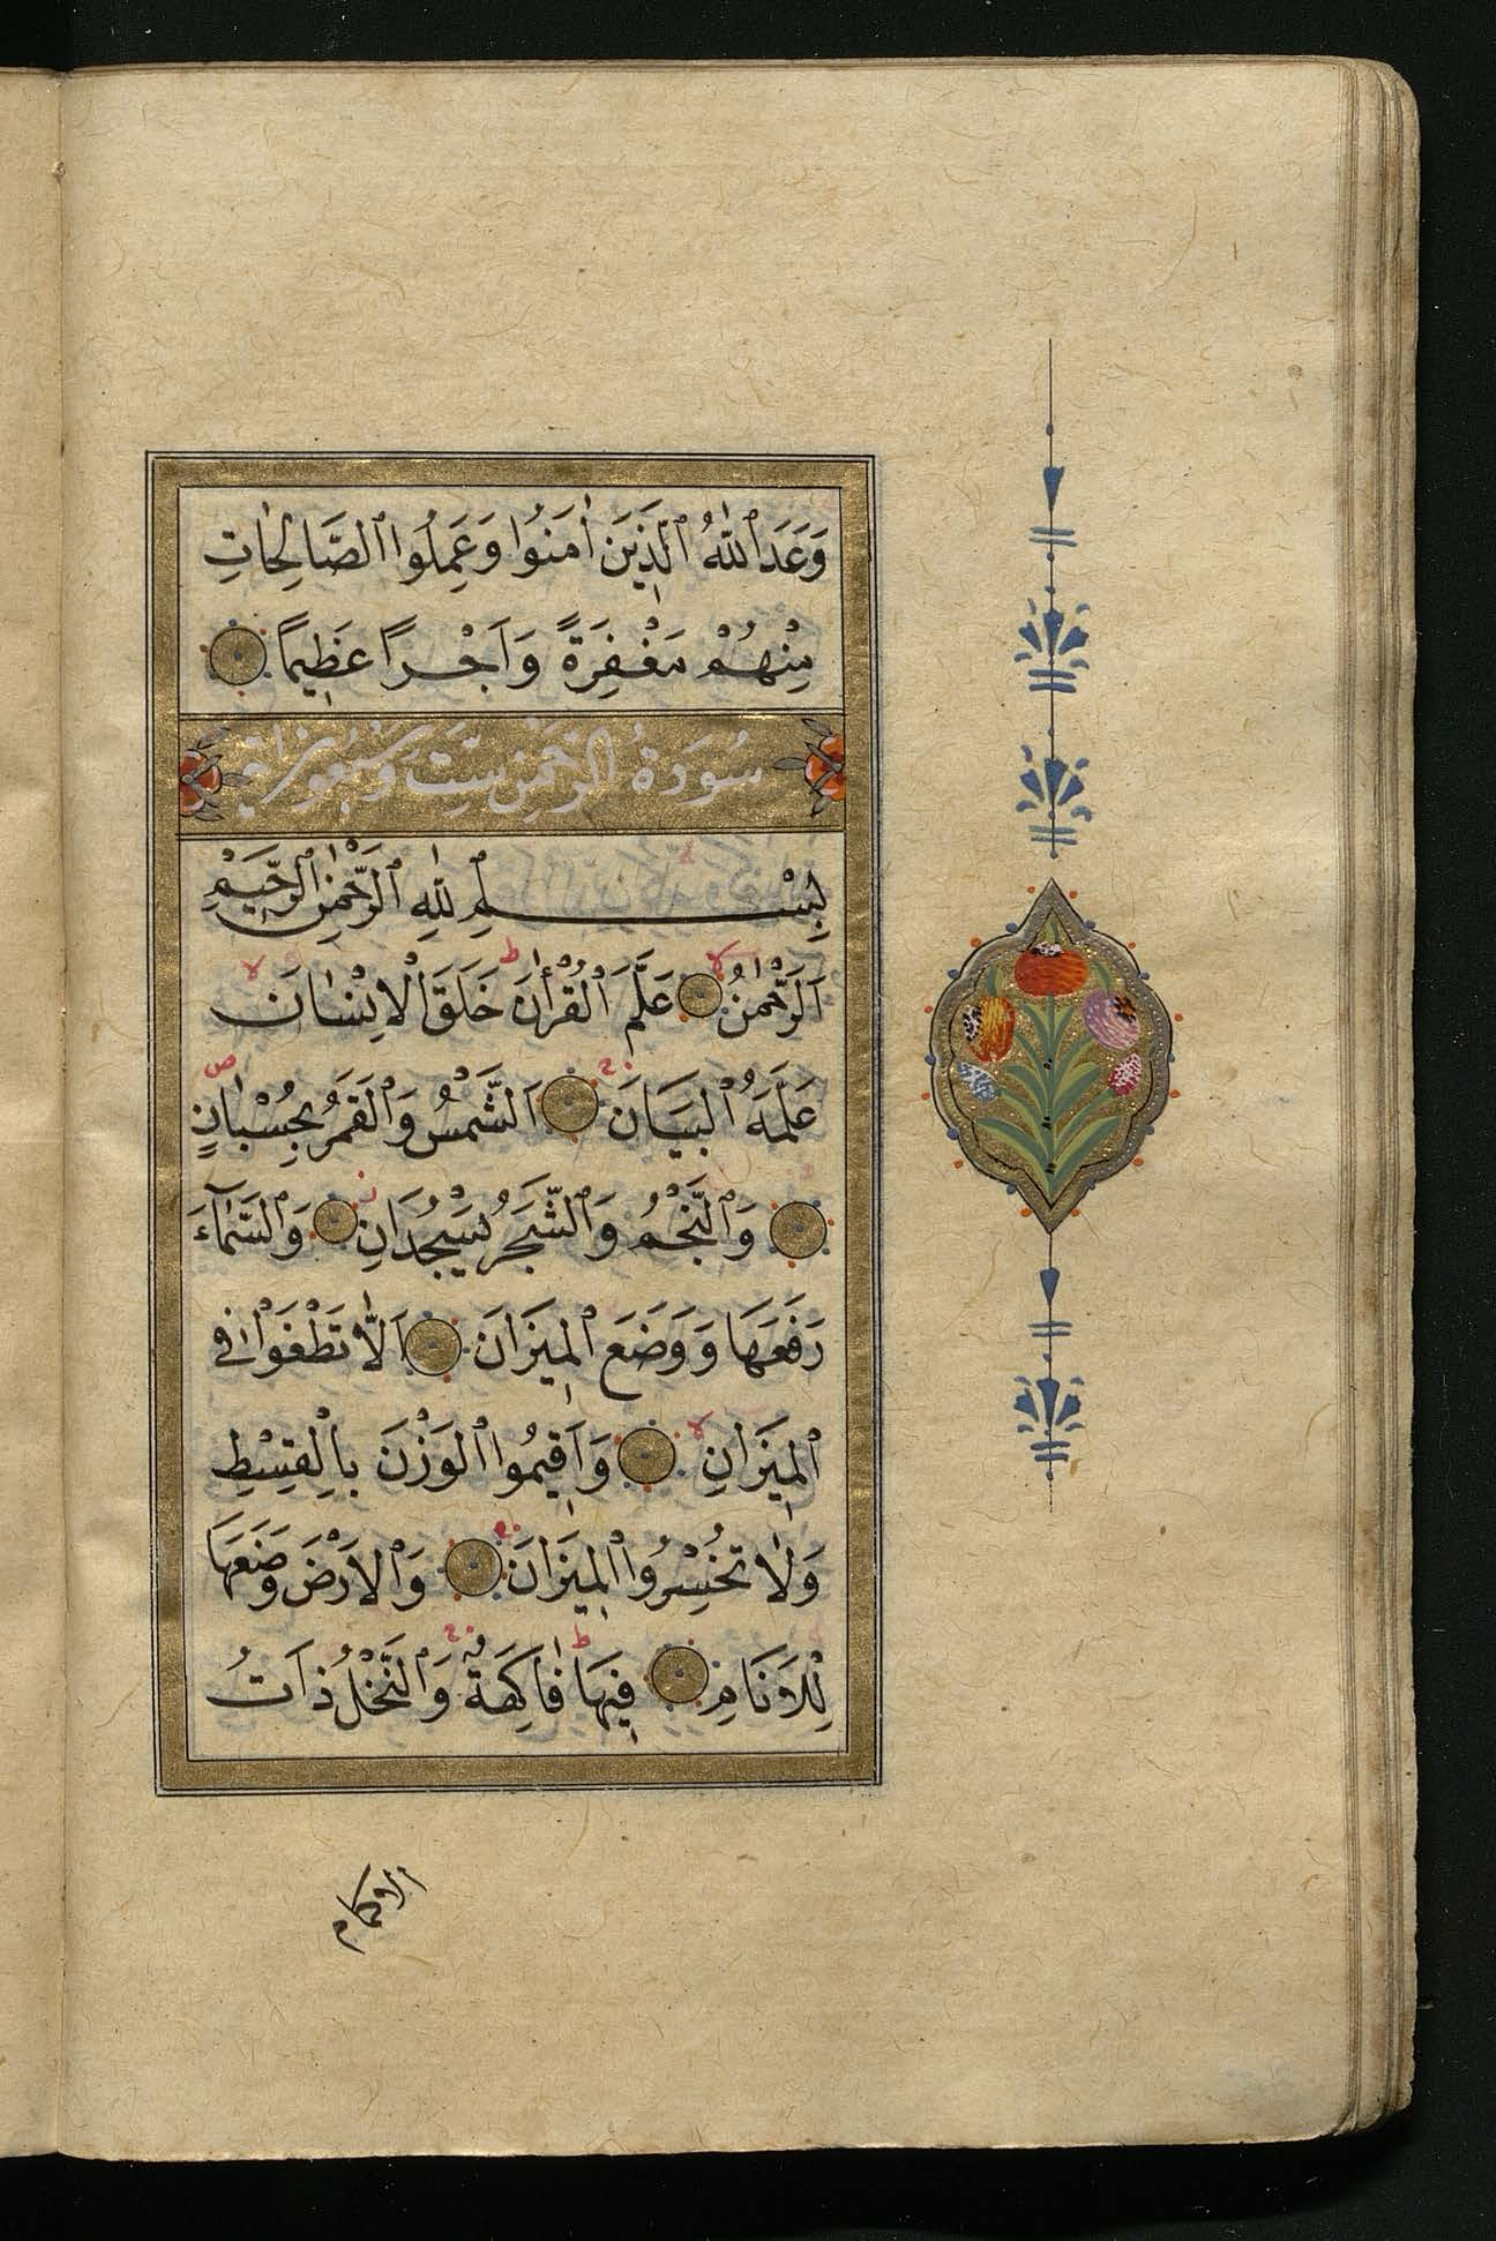 وَعَدَ ٱللّٰهُ ٱلَّذِينَ اٰمَنُوا وَعَمِلُوا ٱلصَّالِحَاتِ
مِنْهُمْ مَغْفِرَةً وَاَجْرًا عَظِيمًا
سُورَةُ الرَّحْمٰنِ سِتَّ وَسَبْعُونَ اٰيَة
بِسْمِ ٱللّٰهِ ٱلرَّحْمٰنِ ٱلرَّحِيمِ
اَلرَّحْمٰنُ لا عَلَّمَ ٱلْقُرْاٰنَ ط خَلَقَ ٱلْاِنْسَانَ لا
عَلَّمَهُ ٱلْبَيَانَ اَلشَّمْسُ وَٱلْقَمَرُ بِحُسْبَانٍ ص
وَٱلنَّجْمُ وَٱلشَّجَرُ يَسْجُدَانِ وَٱلسَّمَآءَ
رَفَعَهَا وَوَضَعَ ٱلْمِيزَانَ اَلَّا تَطْغَوْا فِى
ٱلْمِيزَانِ لا وَاَقِيمُوا ٱلْوَزْنَ بِالْقِسْطِ
وَلَا تُخْسِرُوا ٱلْمِيزَانَ وَٱلْاَرْضَ وَضَعَهَا
لِلْاَنَامِ فِيهَا ط فَاكِهَةٌ وَٱلنَّخْلُ ذَاتُ
الاكمام